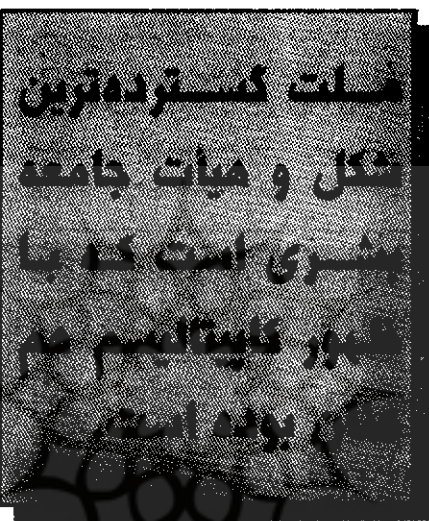 ملت گسترده‌ترین
شکل و هیأت جامعه
بشری است که با
ظهور کاپیتالیسم هم
بوده است.